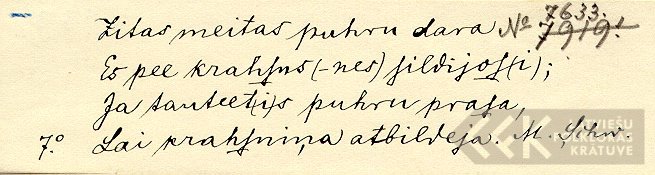 Zitas meitas puhru dara № 7633. 7919!
Es pee krahsns (-nes) sildijos(i);
Ja tauteet(i)s puhru prasa,
7.° Lai krahsniņa atbildeja. M. Schw.
LATVIEŠU FOLKLORAS KRĀTUVE